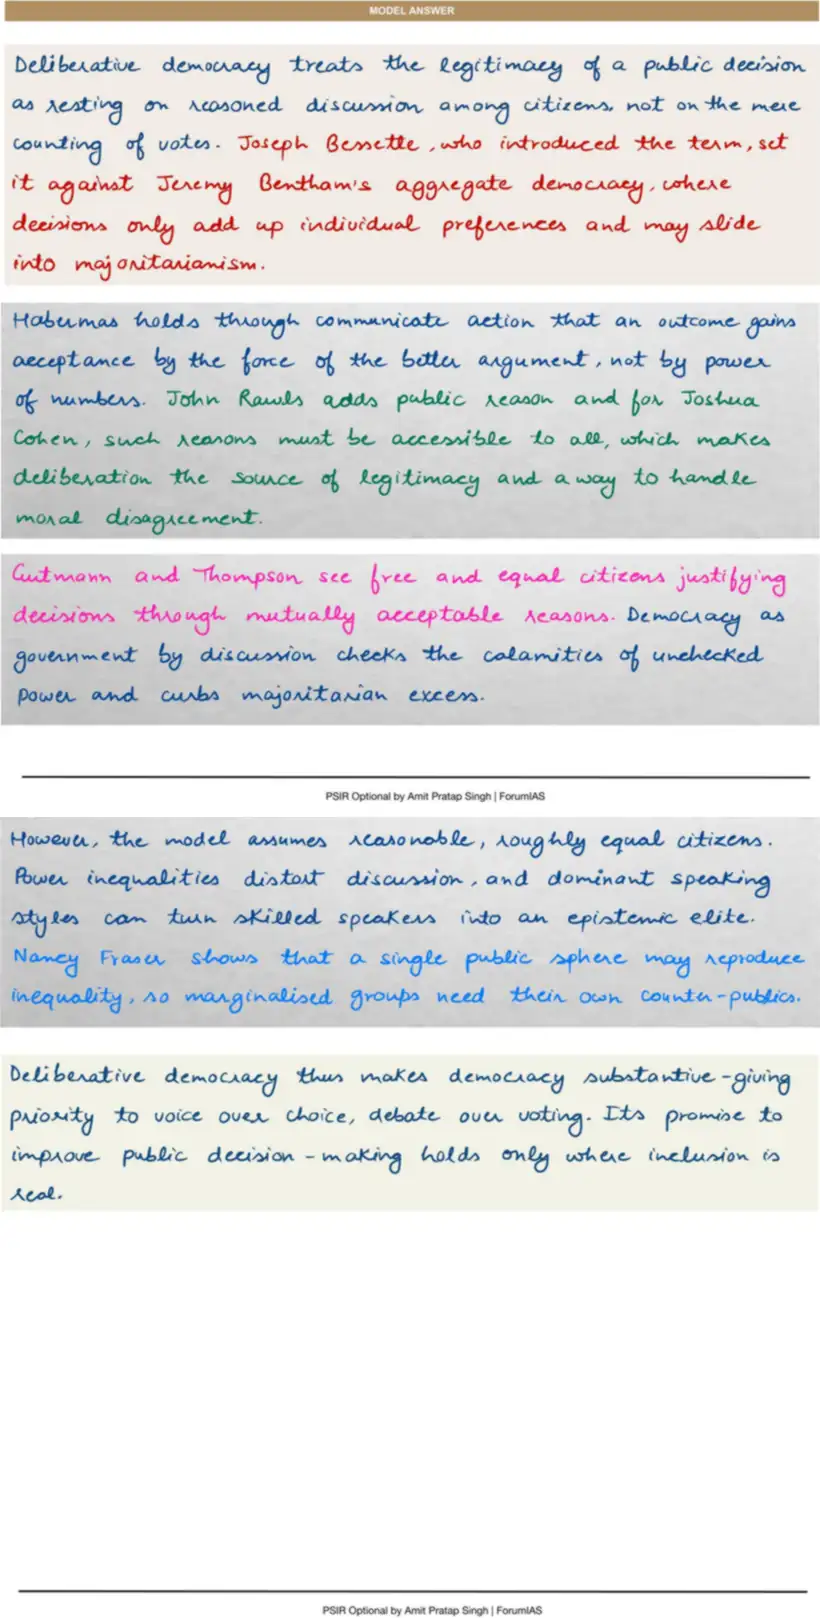 MODEL ANSWER
Deliberative democracy treats the legitimacy of a public decision
as resting on reasoned discussion among citizens, not on the mere
counting of votes. Joseph Bessette, who introduced the term, set
it against Jeremy Bentham's aggregate democracy, where
decisions only add up individual preferences and may slide
into majoritarianism.
Habermas holds through communicate action that an outcome gains
acceptance by the force of the better argument, not by power
of numbers. John Rawls adds public reason and for Joshua
Cohen, such reasons must be accessible to all, which makes
deliberation the source of legitimacy and a way to handle
moral disagreement.
Gutmann and Thompson see free and equal citizens justifying
decisions through mutually acceptable reasons. Democracy as
government by discussion checks the calamities of unchecked
power and curbs majoritarian excess.
PSIR Optional by Amit Pratap Singh | ForumIAS
However, the model assumes reasonable, roughly equal citizens.
Power inequalities distort discussion, and dominant speaking
styles can turn skilled speakers into an epistemic elite.
Nancy Fraser shows that a single public sphere may reproduce
inequality, so marginalised groups need their own counter-publics.
Deliberative democracy thus makes democracy substantive - giving
priority to voice over choice, debate over voting. Its promise to
improve public decision - making holds only where inclusion is
real.
PSIR Optional by Amit Pratap Singh | ForumIAS